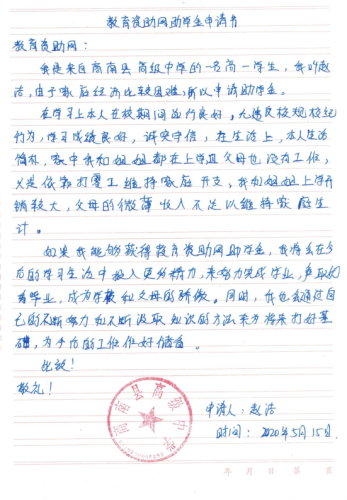 教育资助网助学金申请书
教育资助网:
我是来自商南县高级中学的一名高一学生,我叫赵
浩,由于家庭经济比较困难,所以申请助学金。
在学习上本人在校期间品行良好,无违反校规校纪
行为,学习成绩良好,诚实守信,在生活上,本人生活
俭朴,家中我和姐姐都在上学且父母也没有工作,
父是依靠打零工维持家庭开支,我和姐姐上学开
销较大,父母的微薄收入不足以维持家庭生
计。
如果我能够获得教育资助网助学金,我将会在今
后的学习生活中投入更多精力,来努力完成学业,争取优
秀毕业,成为学校和父母的骄傲。同时,我也会通过自
己的不断努力和不断汲取知识的方法来为将来打好基
础,为今后的工作作好储备。
此致!
敬礼!
商南县高级中学
申请人:赵浩
时间:2020年5月15日.
年 月 日 第 页